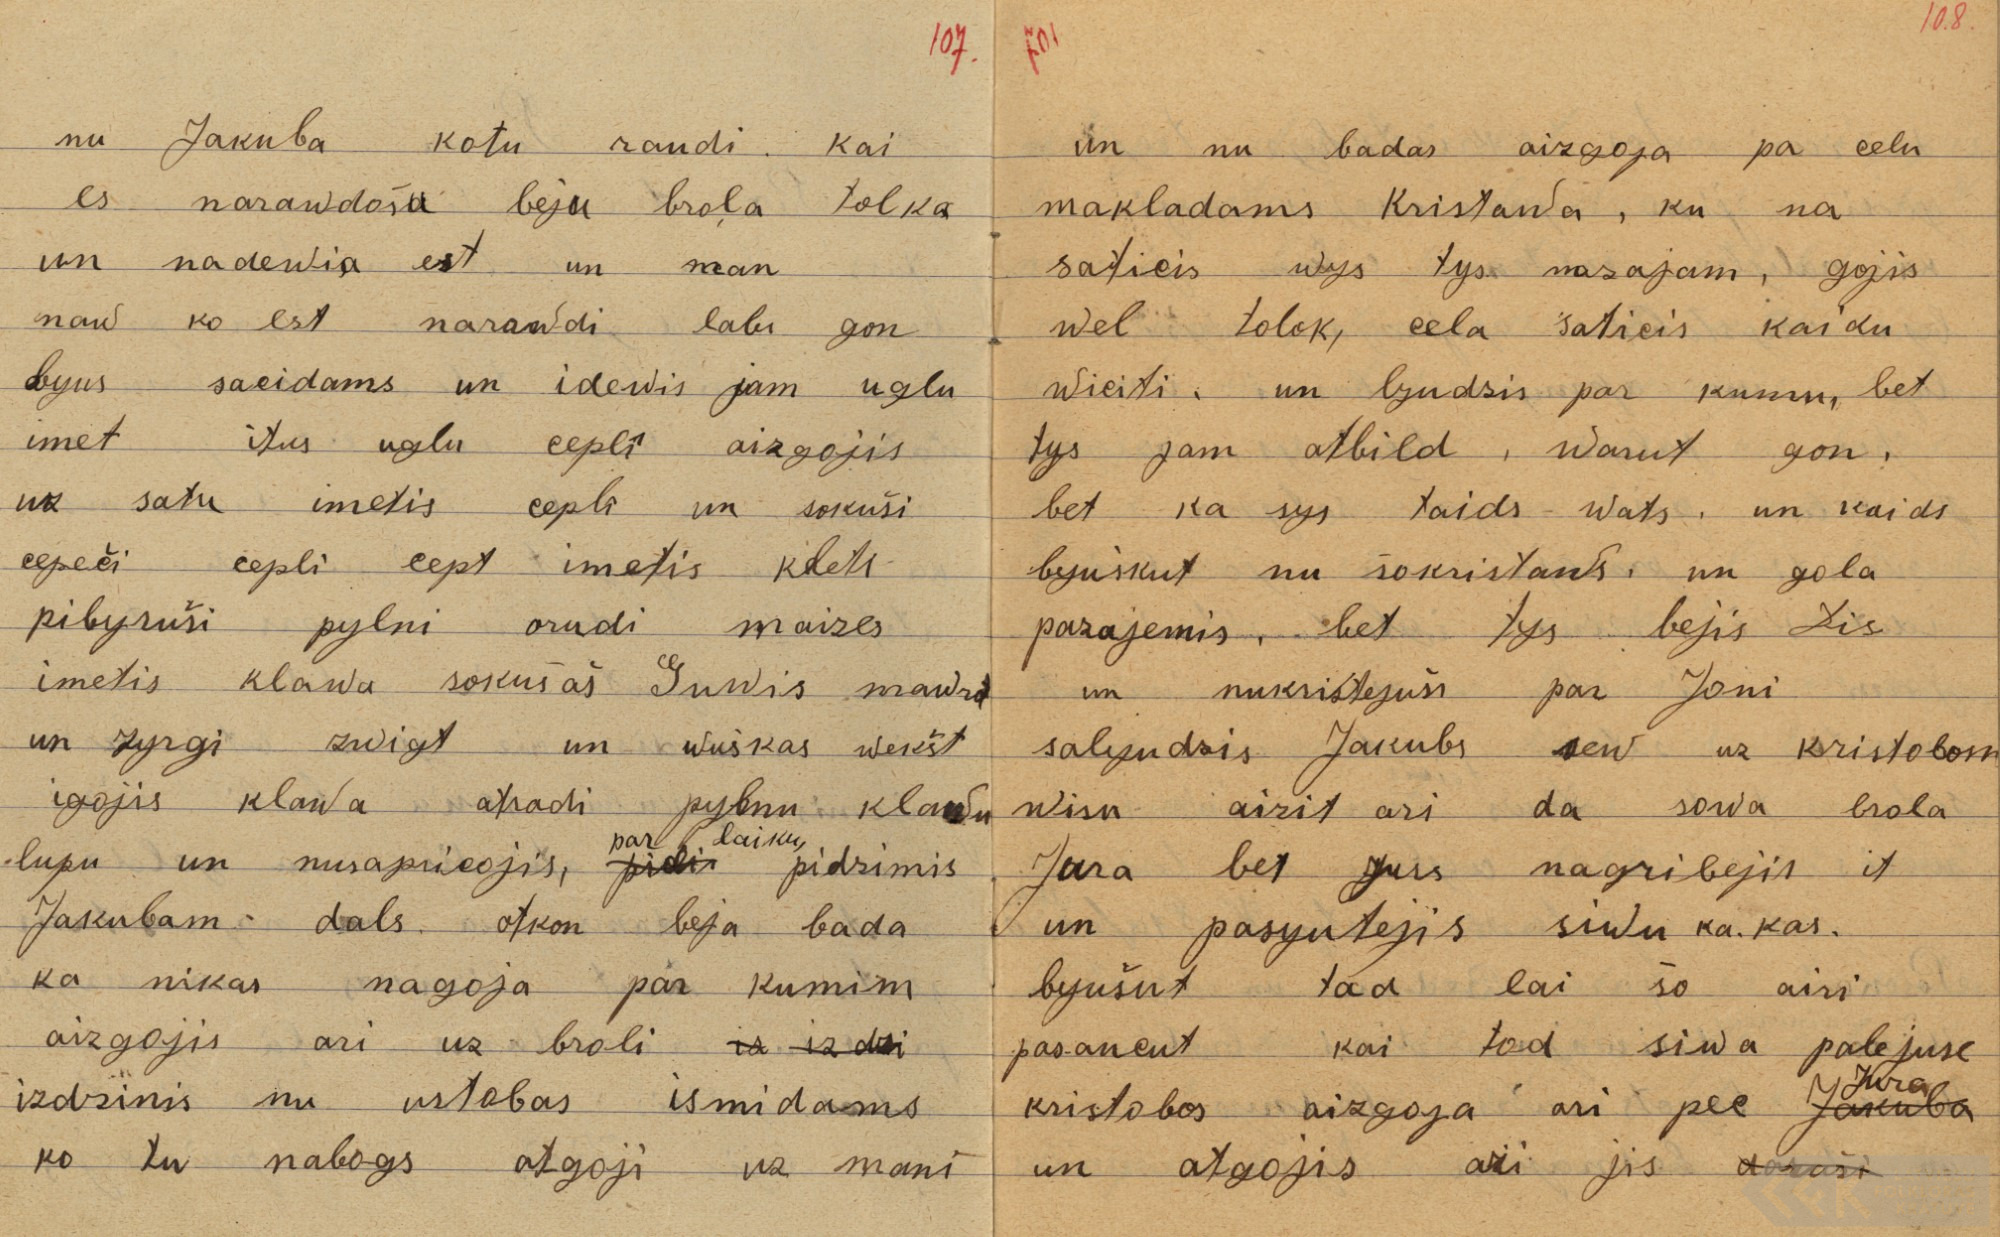 107.
nu Jakuba kotu raudi. kai
es narawdošu beju broļa tolka
un nadewia est un man
naw ko est narawdi labu gon
byus saeidams un idewis jam uglu
imet itus uglu cepli aizgojis
uz satu imetis cepli un sokuši
cepeči cepli cept imetis klets
pibyruši pylni orudi maizes
imetis klawa sokušaš Guwis mawrt
un zyrgi zwigt un wuškas wekšt
igojis klawa atradi pylnu klawu
par laiku,
lupu un nusapricojis, pidi pidzimis
Jakubam dals. otkon beja bada
ka nikas nagoja par kumim
aizgojis ari uz broli iz iz dzi
izdzinis nu ustobas ismidams
ko tu nabogs atgoji uz mani
107
108.
un nu badas aizgoja pa celu
makladams Kristawa, ku na
saticis wys tys nazajam, gojis
wel tolok, cela saticis kaidu
wiciti. un lyudzis par kumu, bet
tys jam atbild, warut gon,
bet ka sys taids wats. un kaids
byuskut nu šokristaws. un gola
pazajemis, bet tys bejis Zis
un nukristejuši par Joni
salyudzis Jakubs sew uz kristobom
wisu aizit ari da sowa brola
Jura bet Juss nagribejis it
un pasyutejis siwu ka. kas.
byušut tad lai šo airi
pasancut kai tod siwa palejuse
Jura
kristobos aizgoja ari pec Jakuba
un atgojis ari jis